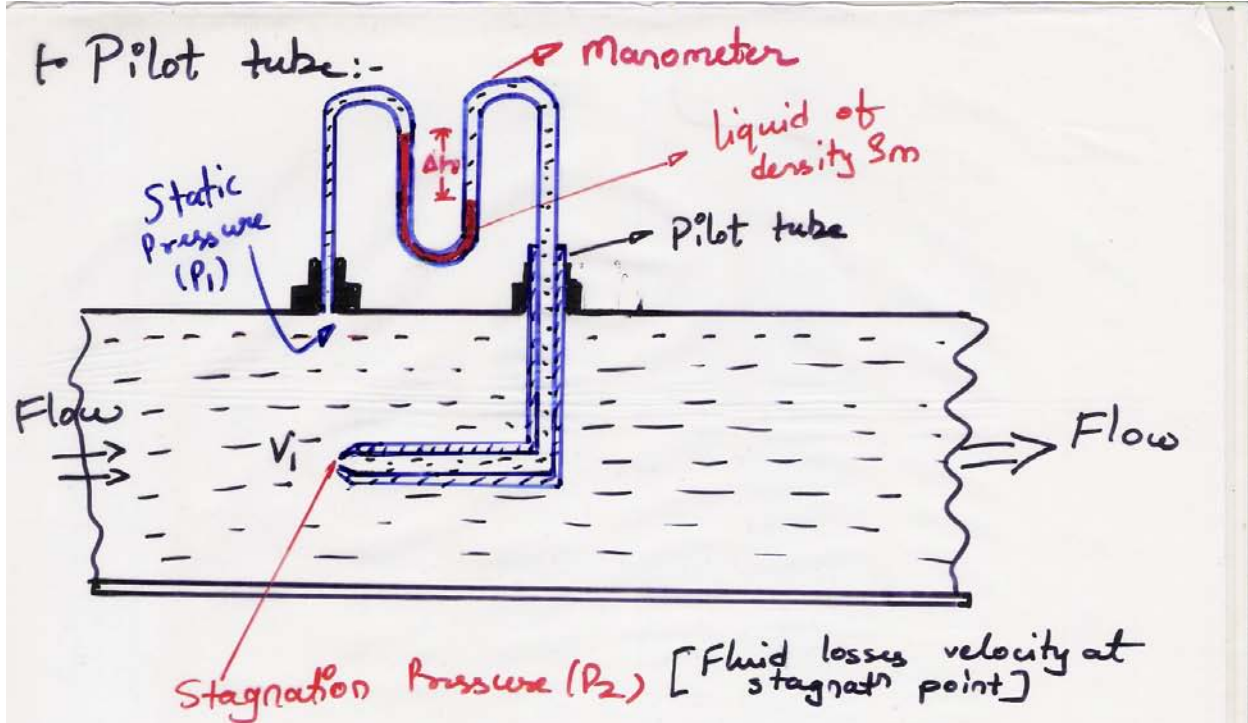 1. Pilot tube:-
Manometer
liquid of
density ρm
Δh
Static
Pressure
(P1)
Pilot tube
Flow
V1
Flow
Stagnation Pressure (P2) [Fluid losses velocity at
stagnatn point]